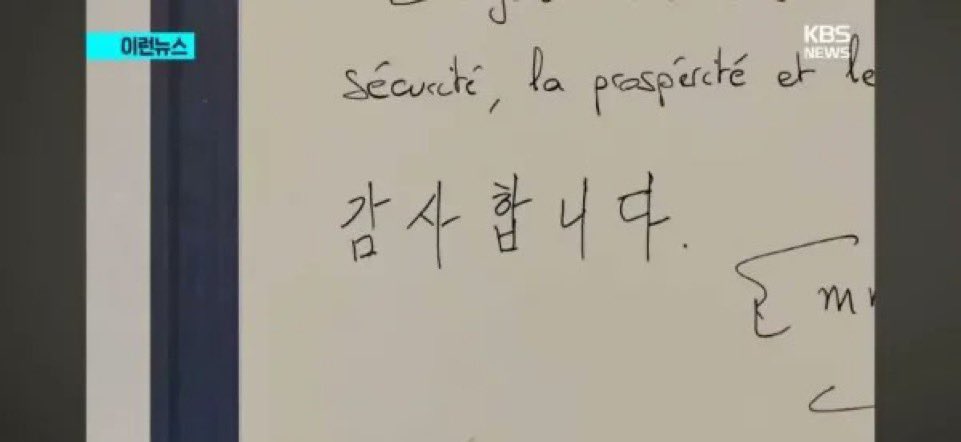 이런뉴스
KBS
NEWS
sécurité, la prospérité et le
감사합니다.